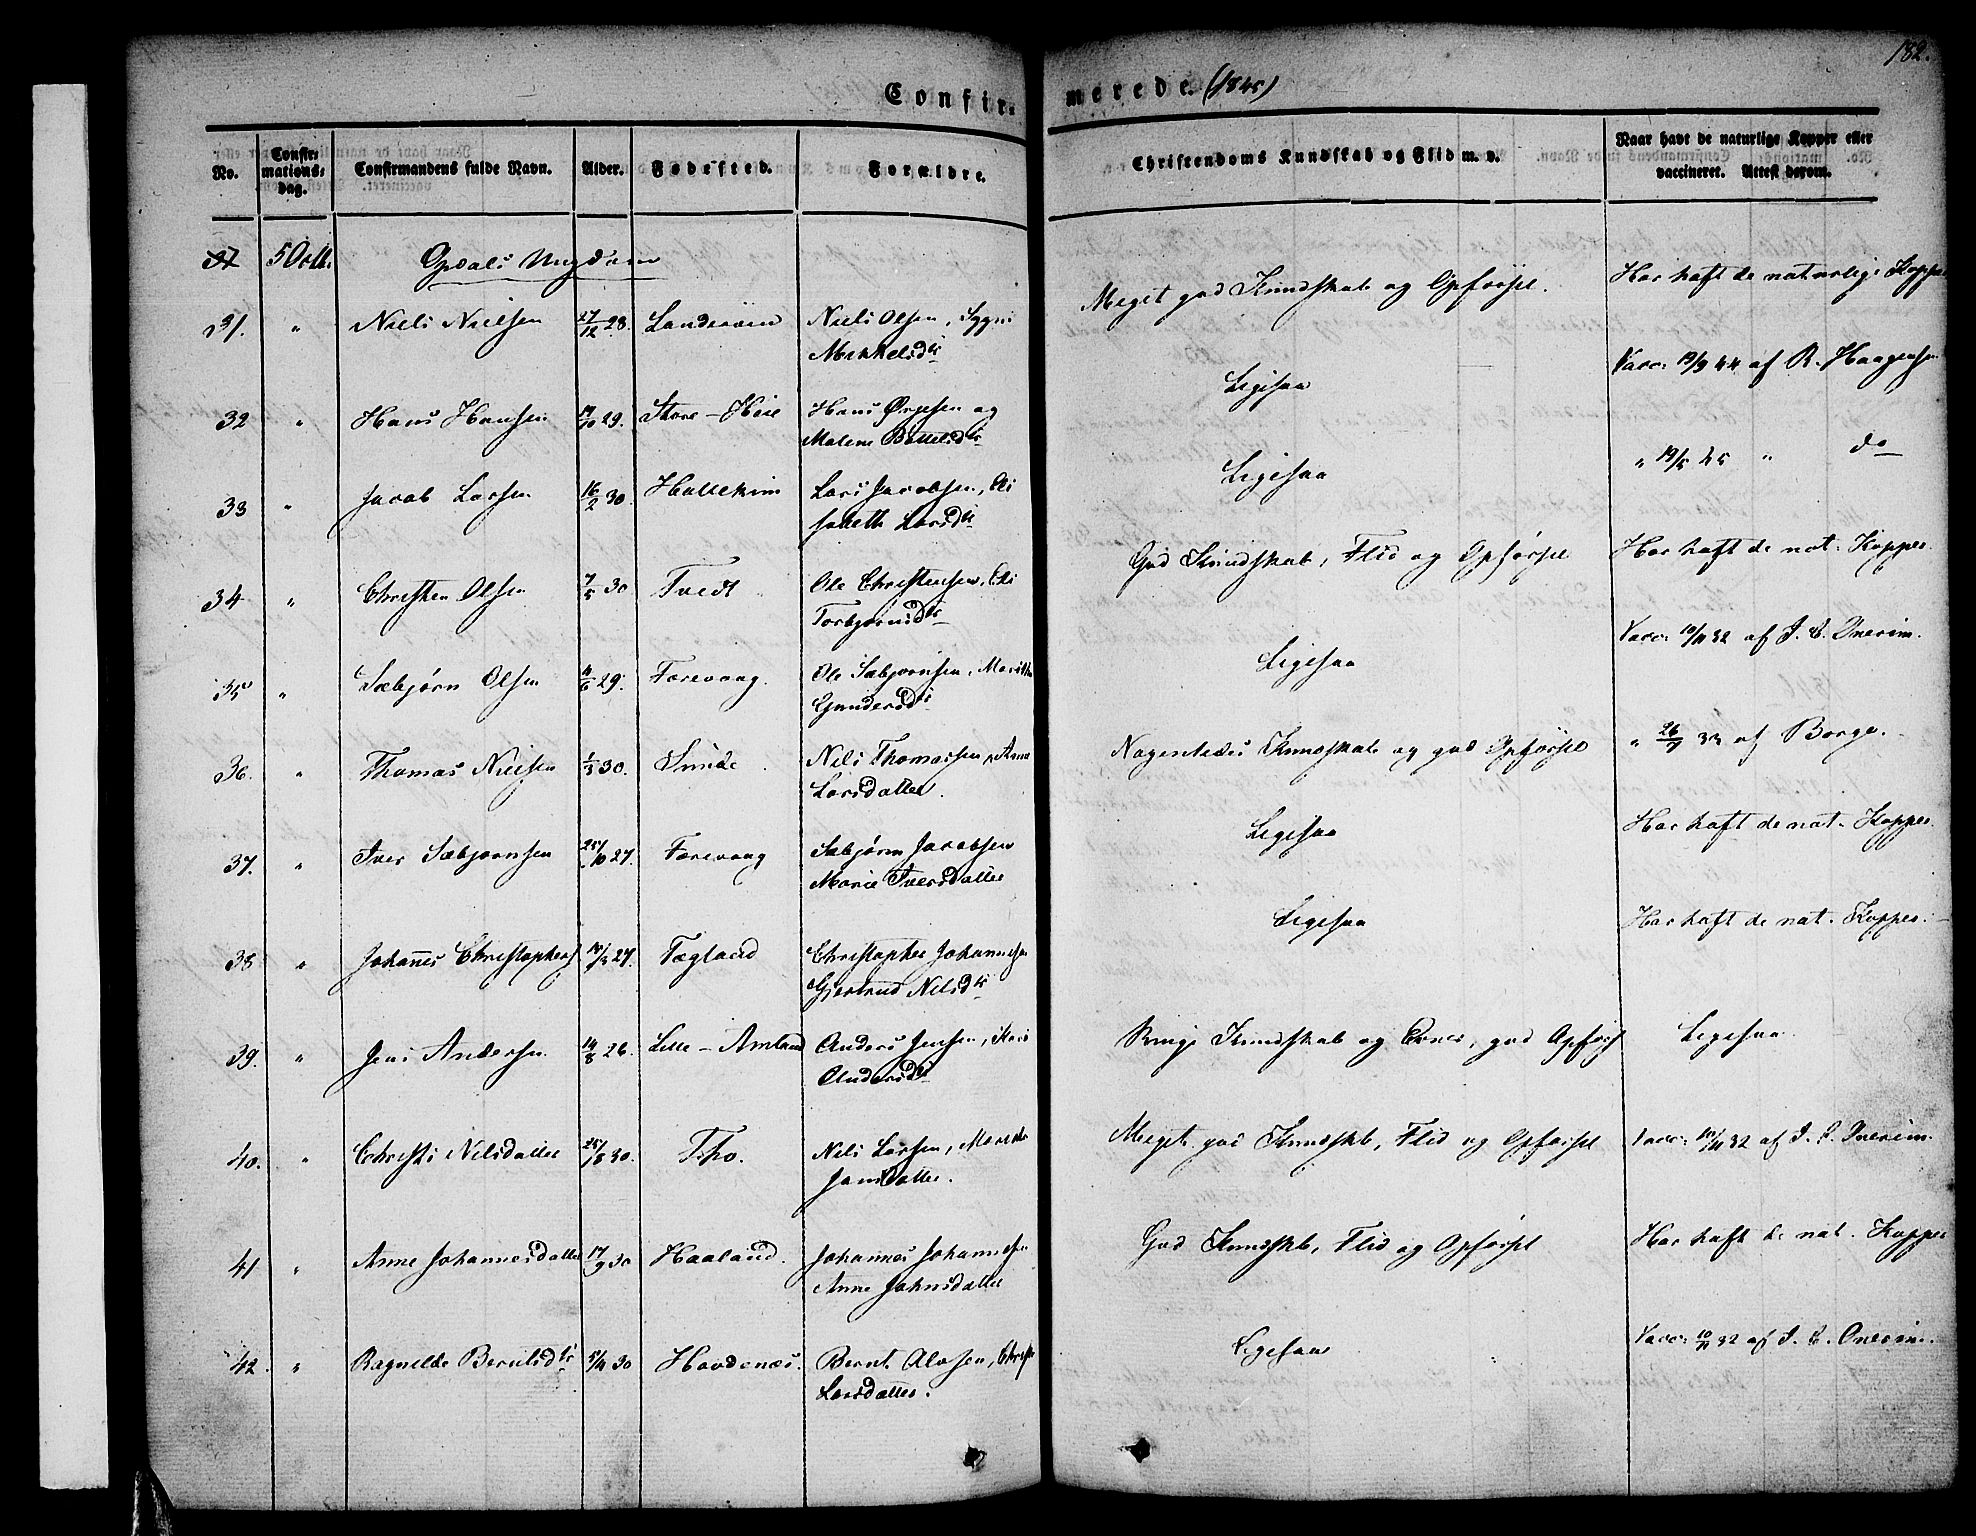 182.
Confir-
merede. (1845)
No.
Confir-
mations-
dag.
Confirmandens fulde Navn.
Alder.
Fødested.
Forældre.
Christendoms Kundskab og Flid m. v.
Naar havt de naturlige Kopper eller
vaccineret. Attest derom.
5 Octb. Opdals Ungdom
31. " Niels Nielsen 27/12 28. Landeroen Niels Olsen, Sygni
Mikkelsdtr
Meget god Kundskab og Opførsel. Har haft de naturlige Kopper
32 " Hans Hansen 14/10 29. Store-Høie Hans Ørjesen og
Malene Bottelsdtr
Ligesaa Vacc: 19/9 44 af R. Haagensen
33 " Jacob Larsen 16/2 30. Hallekim Lars Jacobsen, Eli
sabeth Larsdtr
Ligesaa " 19/5 45 " do
34 " Christen Olsen 7/5 30 Tvedt Ole Christensen, Eli
Torbjørnsdtr
God Kundskab, Flid og Opførsel Har haft de nat. Kopper.
35 " Sæbjørn Olsen 11/6 29. Farevaag. Ole Sæbjørnsen, Maritha
Gundersdtr
Ligesaa Vacc: 10/11 32 af J. C. Onerim.
36. " Thomas Nielsen 1/3 30. Sunde. Nils Thomassen, Anna
Larsdatter.
Nogenledes Kundskab og god Opførsel " 26/7 33 af Borge.
37. " Iver Sæbjørnsen 25/10 27. Farevaag Sæbjørn Jacobsen
Marie Iversdatter
Ligesaa Har haft de nat. Kopper.
38 " Johannes Christophers 18/3 27. Tegland Christopher Johannesen
Gjertrud Nilsdtr
Ligesaa Har haft de nat. Kopper.
39. " Jens Andersen 14/8 26. Lille-Amland Anders Jensen, Kari
Andersdtr
Ringe Kundskab og Evner, god Opførs Ligesaa
40. " Christi Nilsdatter 25/8 30. Tho. Nils Larsen, Maritha
Jansdatter.
Meget god Kundskb, Flid og Opførsel Vacc: 10/11 32 af J. C. Onerim.
41 " Anne Johannesdatter 17/9 30 Haaland. Johannes Johannesen
Anne Johnsdatter
God Kundskb, Flid og Opførsel Har haft de nat. Kopper
42. " Ragnilde Berntsdtr 5/11 30 Havdenæs. Bernt Olavsen, Christi
Larsdatter.
Ligesaa Vacc: 10/11 32 af J. C. Onerim.